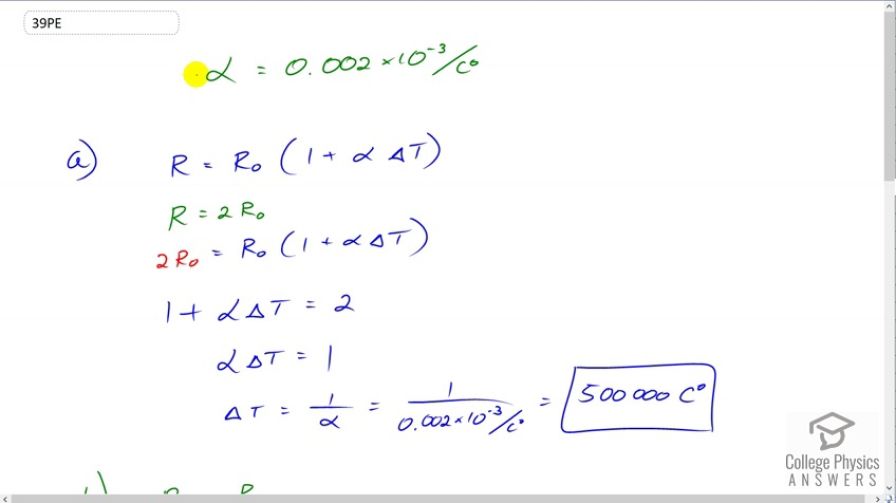 39PE
α = 0.002 × 10⁻³/C°
a) R = R₀ (1 + α ΔT)
R = 2 R₀
2 R₀ = R₀ (1 + α ΔT)
1 + α ΔT = 2
α ΔT = 1
ΔT = 1/α = 1/(0.002 × 10⁻³/C°) = 500 000 C°
College Physics
ANSWERS